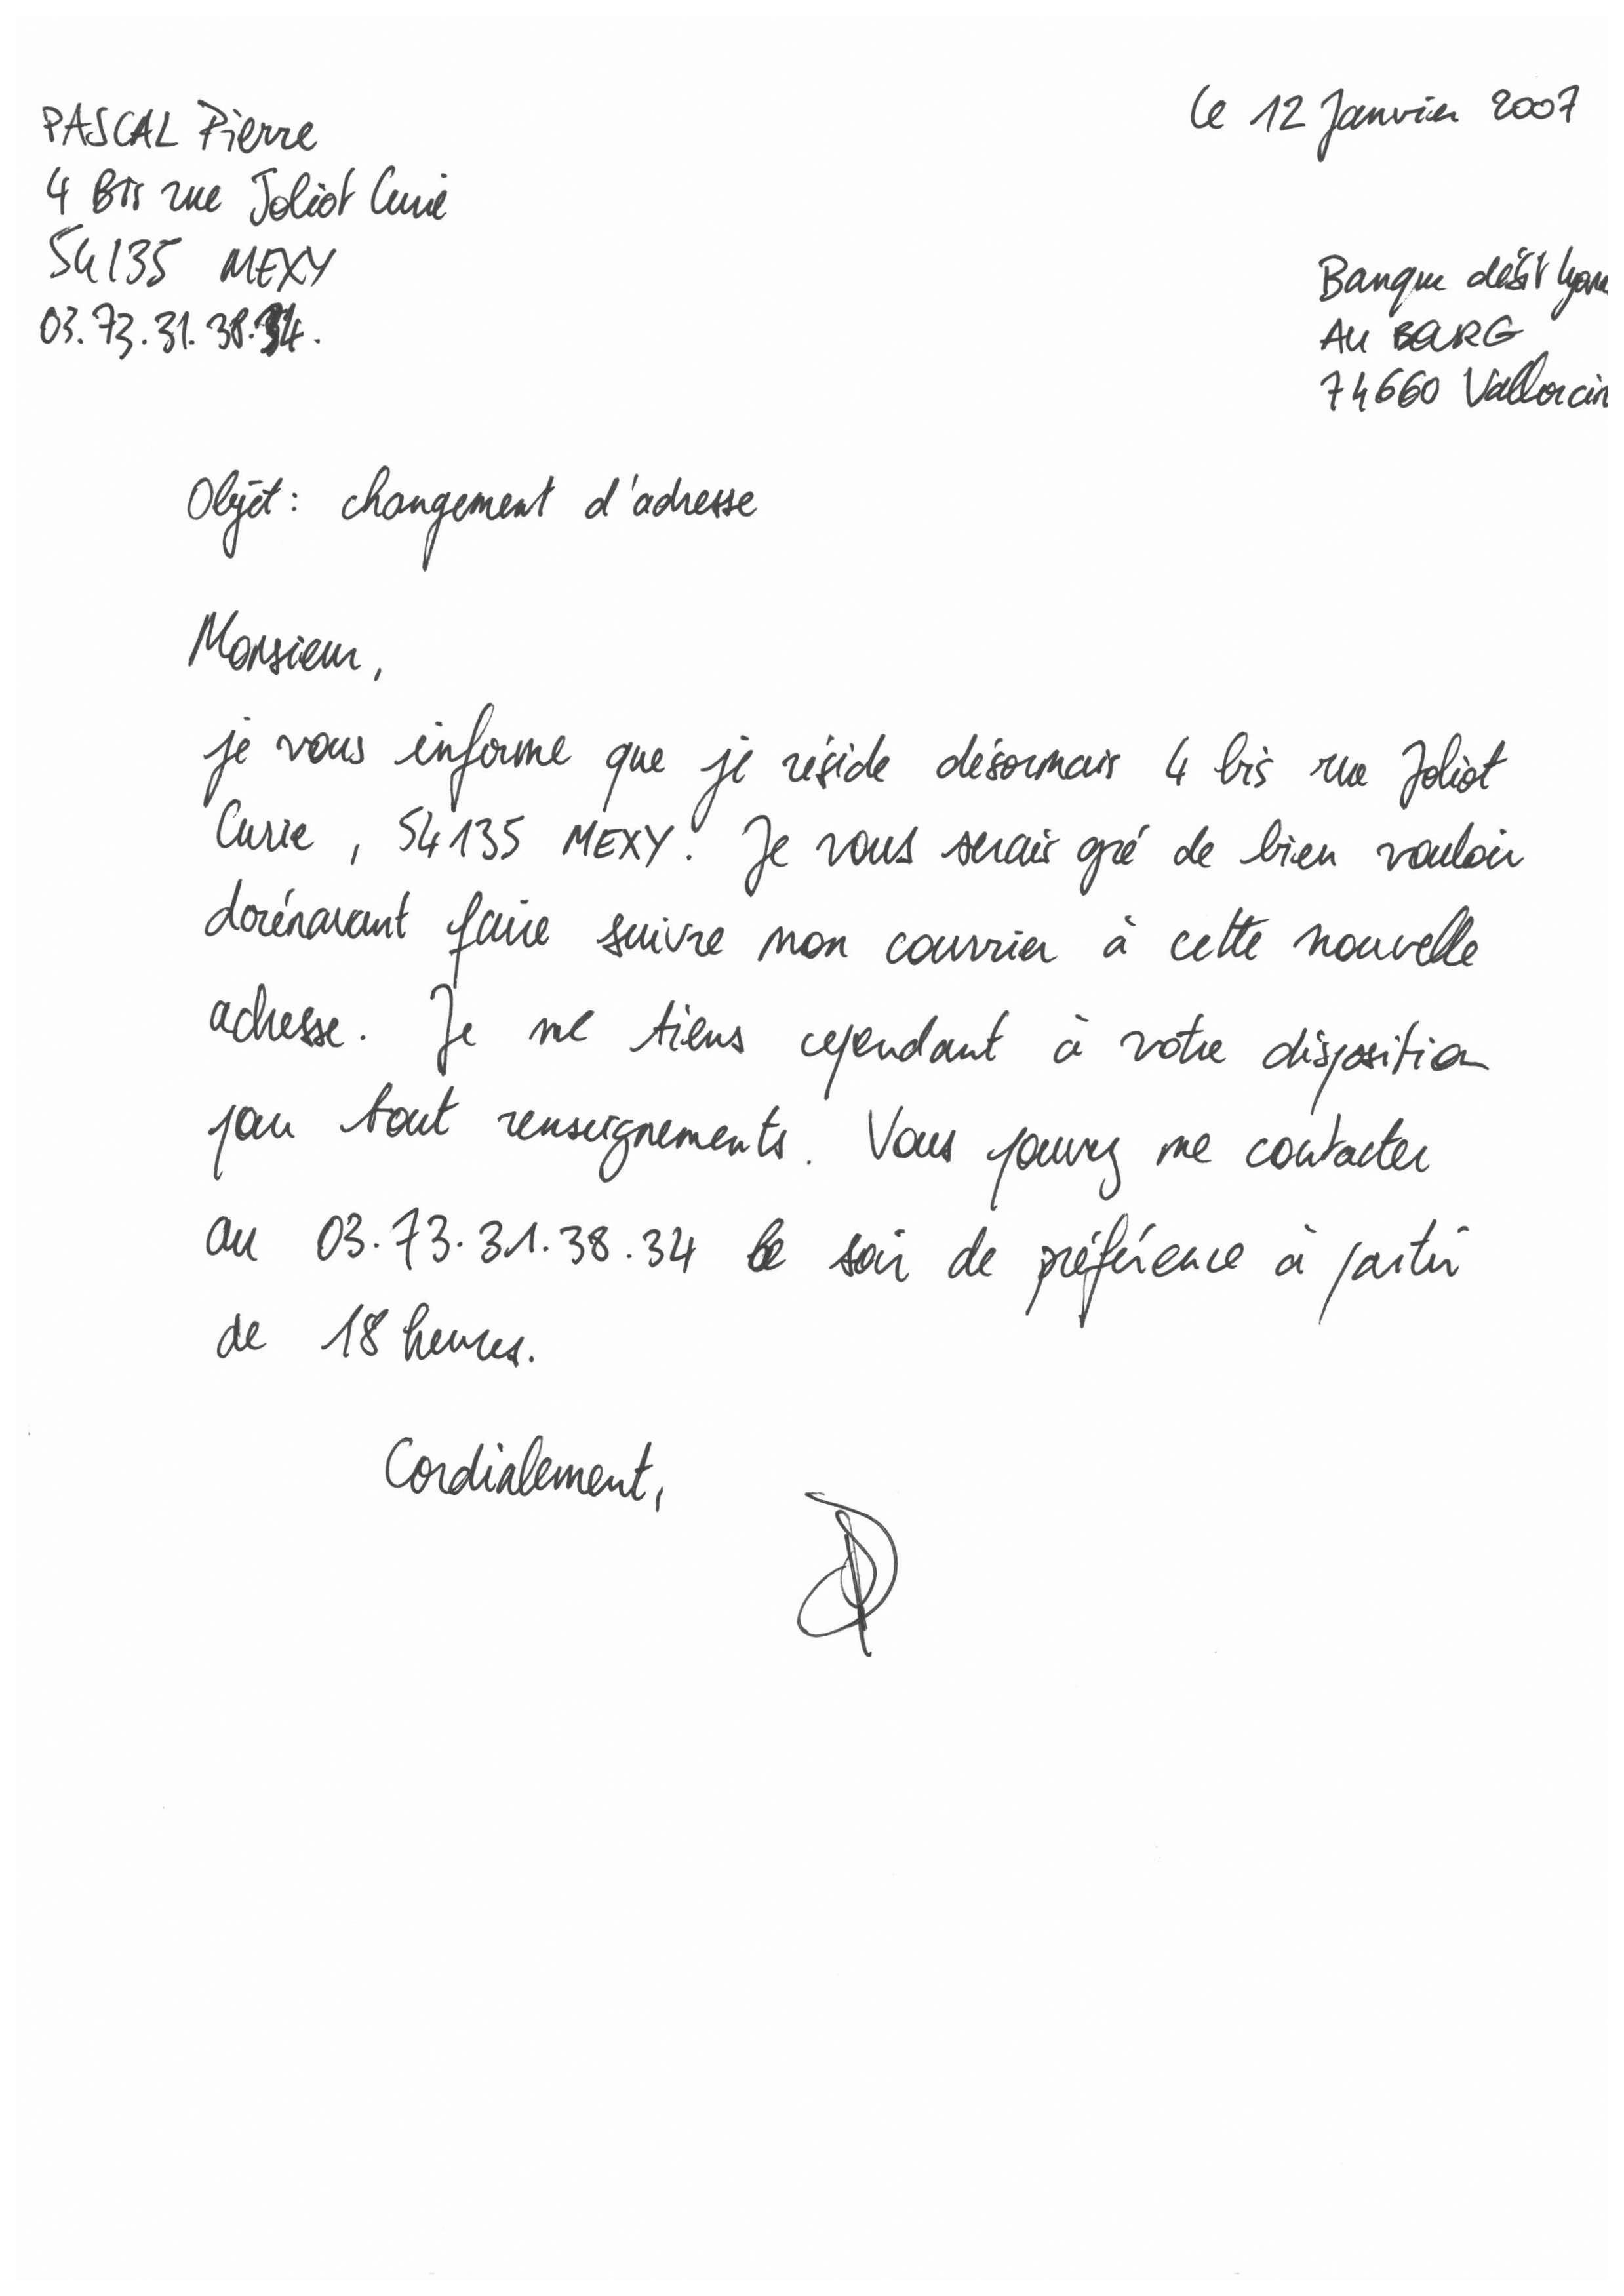 PASCAL Pierre
4 Bis rue Joliot Curie
54135 MEXY
03.73.31.38.34.
le 12 Janvier 2007
Banque
AU BOURG
74660 Vallorcin
Objet : changement d'adresse
Monsieur,
je vous informe que je réside désormais 4 bis rue Joliot
Curie, 54135 MEXY. Je vous serais gré de bien vouloir
dorénavant faire suivre mon courrier à cette nouvelle
adresse. Je me tiens cependant à votre disposition
pour tout renseignements. Vous pouvez me contacter
au 03.73.31.38.34 le soir de préférence à partir
de 18 heures.
Cordialement,